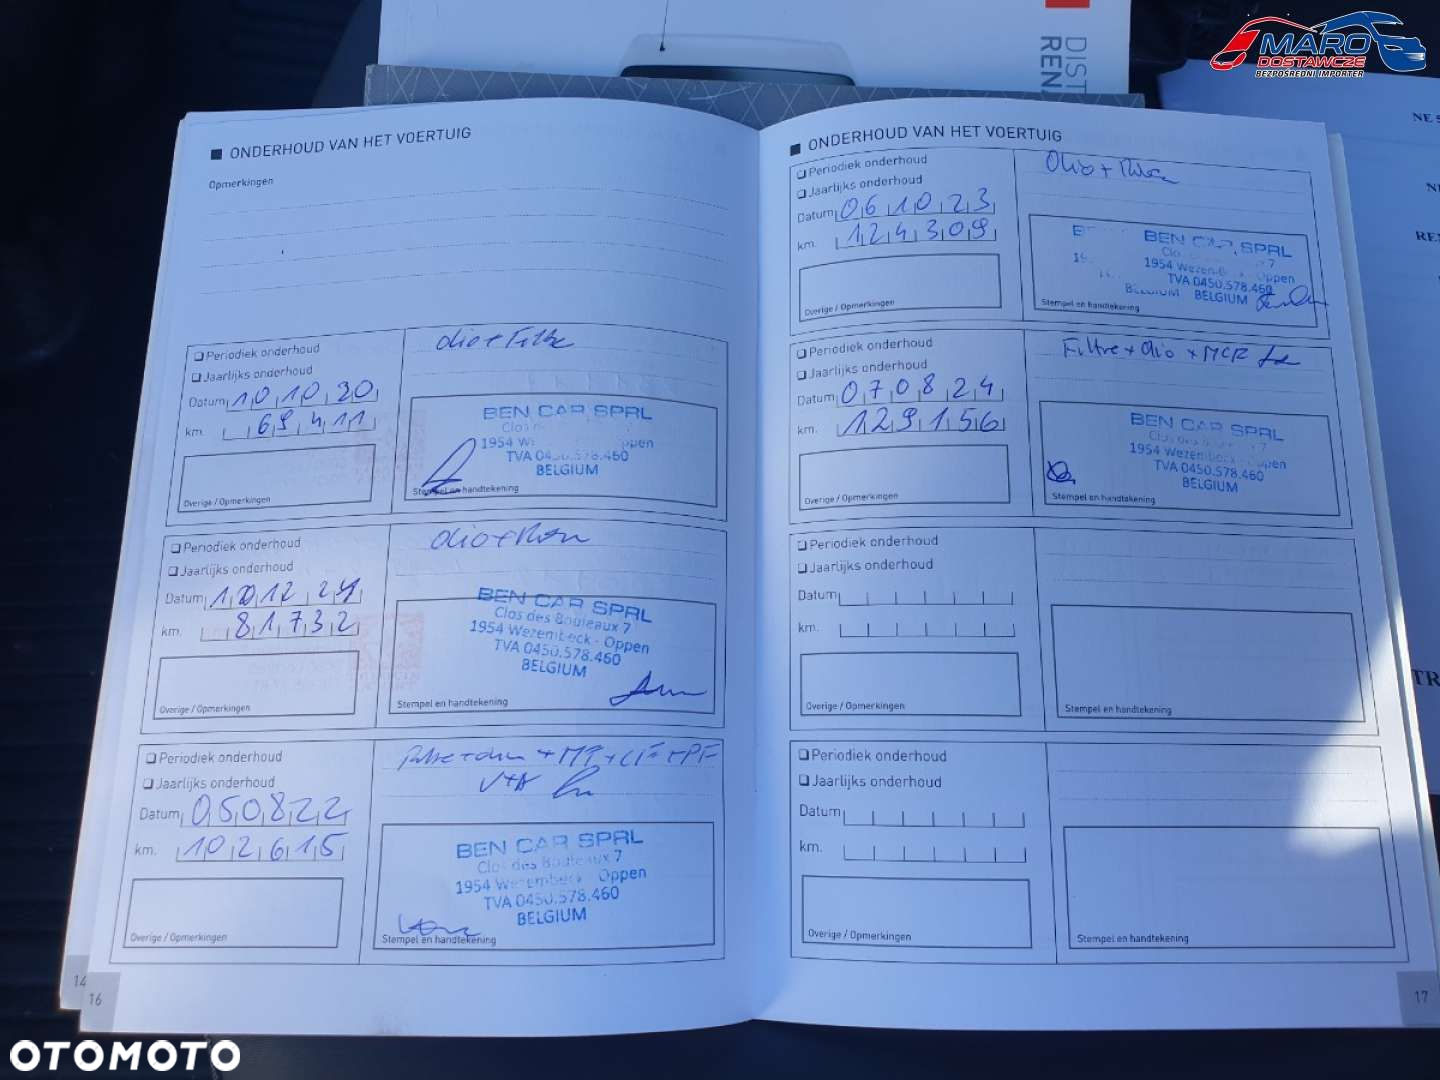 MARO
DOSTAWCZE
BEZPOŚREDNI IMPORTER
DIST
REN
NE S
REN
TR
ONDERHOUD VAN HET VOERTUIG
Opmerkingen
Periodiek onderhoud
Jaarlijks onderhoud
Datum 101020
km. 69411
Overige / Opmerkingen
olio + Filtre
BEN CAR SPRL
Clos
1954 Oppen
TVA 0450.578.460
BELGIUM
Stempel en handtekening
Periodiek onderhoud
Jaarlijks onderhoud
Datum
km. 81732
Overige / Opmerkingen
olio +
BEN CAR SPRL
Clos des Bouleaux 7
1954 Wezembeek - Oppen
TVA 0450.578.460
BELGIUM
Stempel en handtekening
Periodiek onderhoud
Jaarlijks onderhoud
Datum 050822
km. 102615
Overige / Opmerkingen
BEN CAR SPRL
Clos des Bouleaux 7
1954 Wezembeek - Oppen
TVA 0450.578.460
BELGIUM
Stempel en handtekening
14
16
ONDERHOUD VAN HET VOERTUIG
Periodiek onderhoud
Jaarlijks onderhoud
Datum 061023
km. 124309
Overige / Opmerkingen
Olio +
BEN CAR SPRL
7
1954 Oppen
TVA 0450.578.460
BELGIUM BELGIUM
Stempel en handtekening
Periodiek onderhoud
Jaarlijks onderhoud
Datum 070824
km. 129156
Overige / Opmerkingen
Filtre + Olio + MCR
BEN CAR SPRL
Clos des
1954 Wezembeek - Oppen
TVA 0450.578.460
BELGIUM
Stempel en handtekening
Periodiek onderhoud
Jaarlijks onderhoud
Datum
km.
Overige / Opmerkingen
Stempel en handtekening
Periodiek onderhoud
Jaarlijks onderhoud
Datum
km.
Overige / Opmerkingen
Stempel en handtekening
17
OTOMOTO